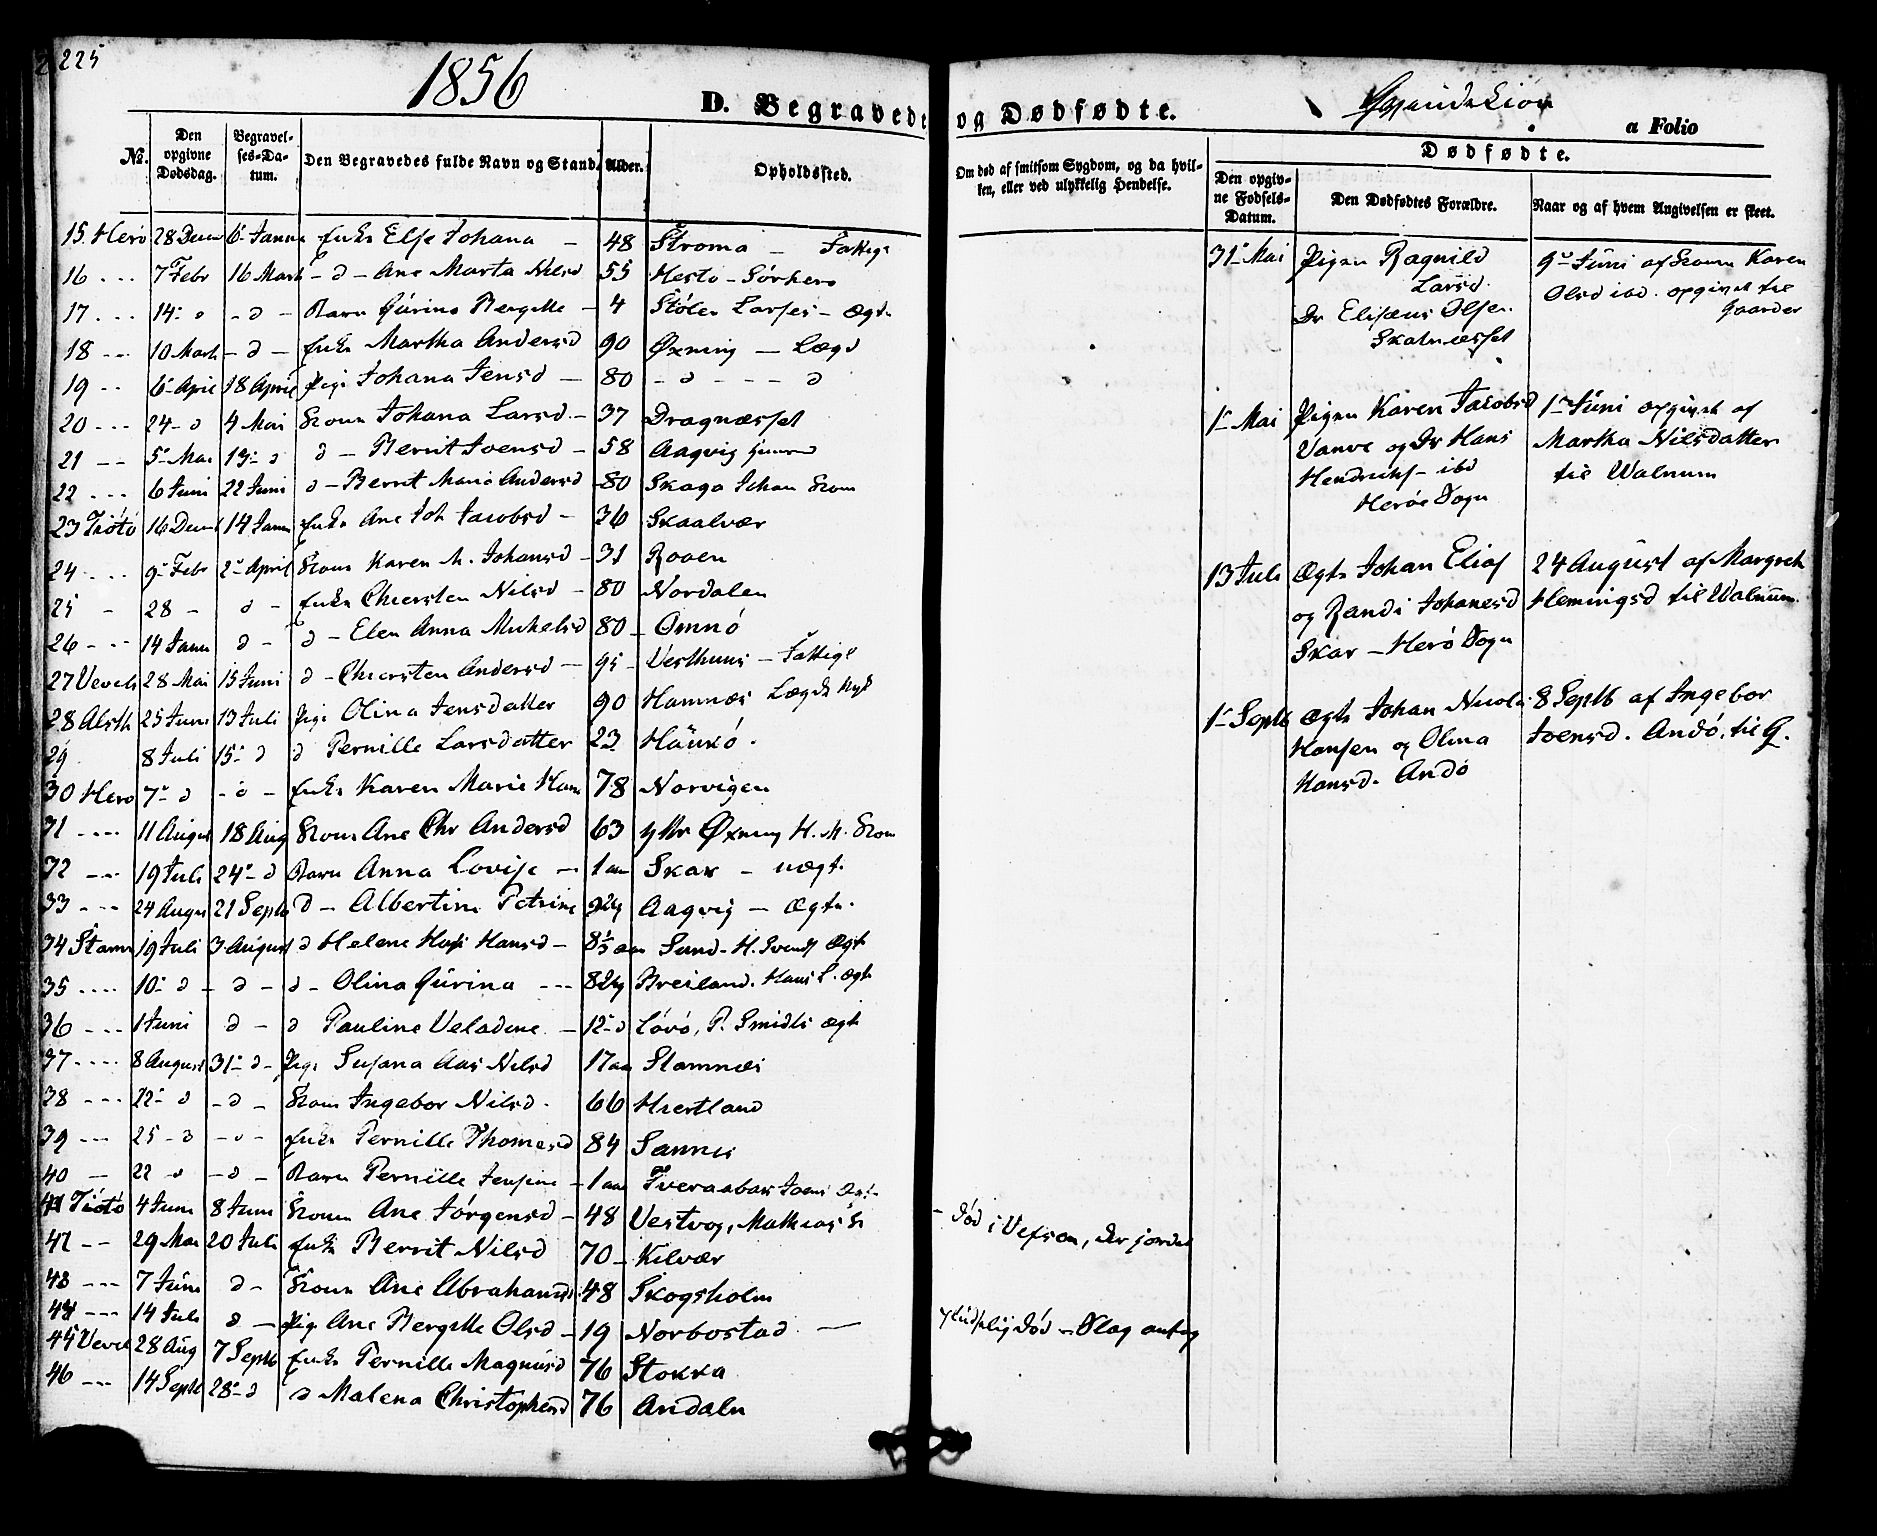 225
1856
D. Begravede og Dødfødte.
Qvindekiøn
a Folio
No.
Den opgivne Dødsdag.
Begravelses-Datum.
Den Begravedes fulde Navn og Stand.
Alder.
Opholdssted.
Om død af smitsom Sygdom, og da hvilken, eller ved ulykkelig Hendelse.
Dødfødte.
Den opgivne Fødsels-Datum.
Den Dødfødtes Forældre.
Naar og af hvem Angivelsen er skeet.
15. Herø 28 Decem 6 Janu Enke Else Johana - 48 Stroma - Fattige
16 - - - 7 Febr 16 Marts - d - Ane Marta Nilsd 55 Hestø - Sørhero
17 - - - 14 - d - d - Barn Gurine Bergitte - 4 Støler Larses - Ægt.
18 - - 10 Marts - d - Enke Martha Andersd 90 Øxning - Lægd
19 - - 6 April 18 April Pige Johana Jensd - 80 - d - - - d
20 - - - 24 - d 4 Mai Kone Johana Larsd - 37 Dragnæsset
21 - - 5 Mai 13 - d d - Berrit Ivensd - 58 Aagvig
22 - - - 6 Juni 22 Juni d - Berrit Maria Andersd - 80 Skaga Johan Kone
23 Tiøtø 16 Decemb 14 Janu Enke Ane Joh Jacobsd - 36 Skaalvær
24 - - - 9 Febr 2 April Kone Karen M. Johansd - 31 Rooen
25 - 28 - d - Enke Chiersten Nilsd - 80 Nordalen
26 - - - 14 Janu d - d - Elen Anna Mikelsd 80 - Omnø
27 Vevels 28 Mai 15 Juni d - Chiersten Andersd - 95 - Vesthuus - Fattige
28 Alsth 25 Juni 13 Juli Pige Olina Jensdatter 90 Hamnæs Lægd
29 8 Juli 15 - d d Pernille Larsdatter 23 Haukø.
30 Herø 7 - d - d - Enke Karen Marie Hans 78 Norvigen
31 - - - - 11 August 18 Aug Kone Ane Chr Andersd 63 Ytr Øxning H. M. Kone
32 - - - 19 Juli 24 - d Barn Anna Lovise - 1 aar Skar - uægt.
33 - - - 24 August 21 Septb d - Albertine Petrine Aagvig - Ægte.
34 Stamn 19 Juli 3 August d Helene Hansd - 8½ aar Sund - H. Svends Ægt
35 - - - - 10 - d - d - d - Olina Gurina - - - Breiland. Hans L. Ægt
36 - - - 1 Juni d - d Pauline Veladine - 12 - d Løvø, P. Smidts Ægt
37 - - - - 8 August 31 - d - Pige Susana Aas Nilsd 17 aar Stamnæs
38 - - - 22 - d - d - Kone Ingebor Nilsd. 66 Hiertland
39 - - - 25 - d - d - Enke Pernille Thomasd 84 Sannes
40 - 22 - d - d - Barn Pernille Jensine - 1 aar Tveraabak Joens Ægt
41 Tiøtø 4 Juni 8 Juni Kone Ane Jørgensd - 48 Vestvog, Mathias K - død i Vefsen, der jordet
42 - - 29 Mai 20 Juli Enke Berrit Nilsd 70 - Kilvær
43 - - - 7 Juni d - Kone Ane Abrahamsd 48 Skogsholm
44 - - - 14 Juli d - Pige Ane Bergitte Olsd - 19 Norbostad -
45 Vevel 28 Aug 7 Septb Enke Pernille Magnusd 76 Stokka
46 - - - 14 Septb 28 - d d Malena Christophersd 76 Andaln
31 Mai Pigen Ragnild Larsd. Dr Elisæus Olsen Skalnæsset
9 Juni af Konen Karen Olsd ibd. opgivet til Gaarder
1 Mai Pigen Karen Jacobsd Vanve og Dr Hans Hendriks - ibd Herøe Sogn
1 Juni opgivet af Martha Nilsdatter til Walnum
13 Juli Ægte Johan Elias og Randi Johanesd Skar - Herø Sogn
24 August af Margreth Hemingsd til Walnum.
1 Septb Ægte Johan Nicolai Hansen og Olina Hansd. Andø
8 Septb af Ingebor Joensd. Andø, til G.